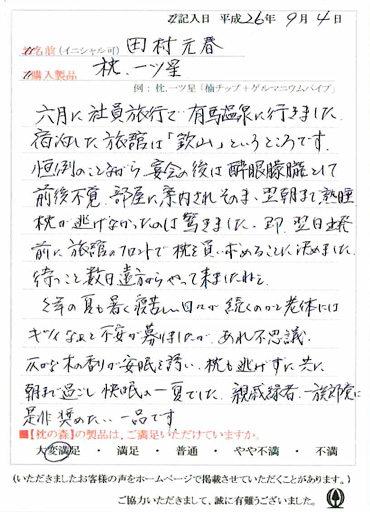 記入日 平成26年 9月 4日
お名前(イニシャル可) 田村元春
ご購入製品 枕、一ツ星
例:枕、一ツ星「楠チップ+ゲルマニウムパイプ」
六月に社員旅行で有馬温泉に行きました。
宿泊した旅館は「欽山」というところです。
恒例のことながら、宴会の後は酔眼朦朧として
前後不覚、部屋に案内されそのまゝ翌朝まで熟睡
枕が逃げなかったのは驚きました。即、翌日出発
前に旅館のフロントで枕を買い求めることに決めました。
待つこと数日遠方からやって来ましたねと
今年の夏も暑く寝苦しい日々が続くのかと老体には
キツイなぁと不安が募りましたが、あれ不思議、
仄かな木の香りが安眠を誘い、枕も逃げずに共に
朝まで過ごし快眠の一夏でした。親戚縁者、一族郎党に
是非奨めたい一品です
■【枕の森】の製品は、ご満足いただけていますか。
大変満足 ・ 満足 ・ 普通 ・ やや不満 ・ 不満
(いただきましたお客様の声をホームページで掲載させていただくことがあります。)
ご協力いただきまして、誠に有難うございました。